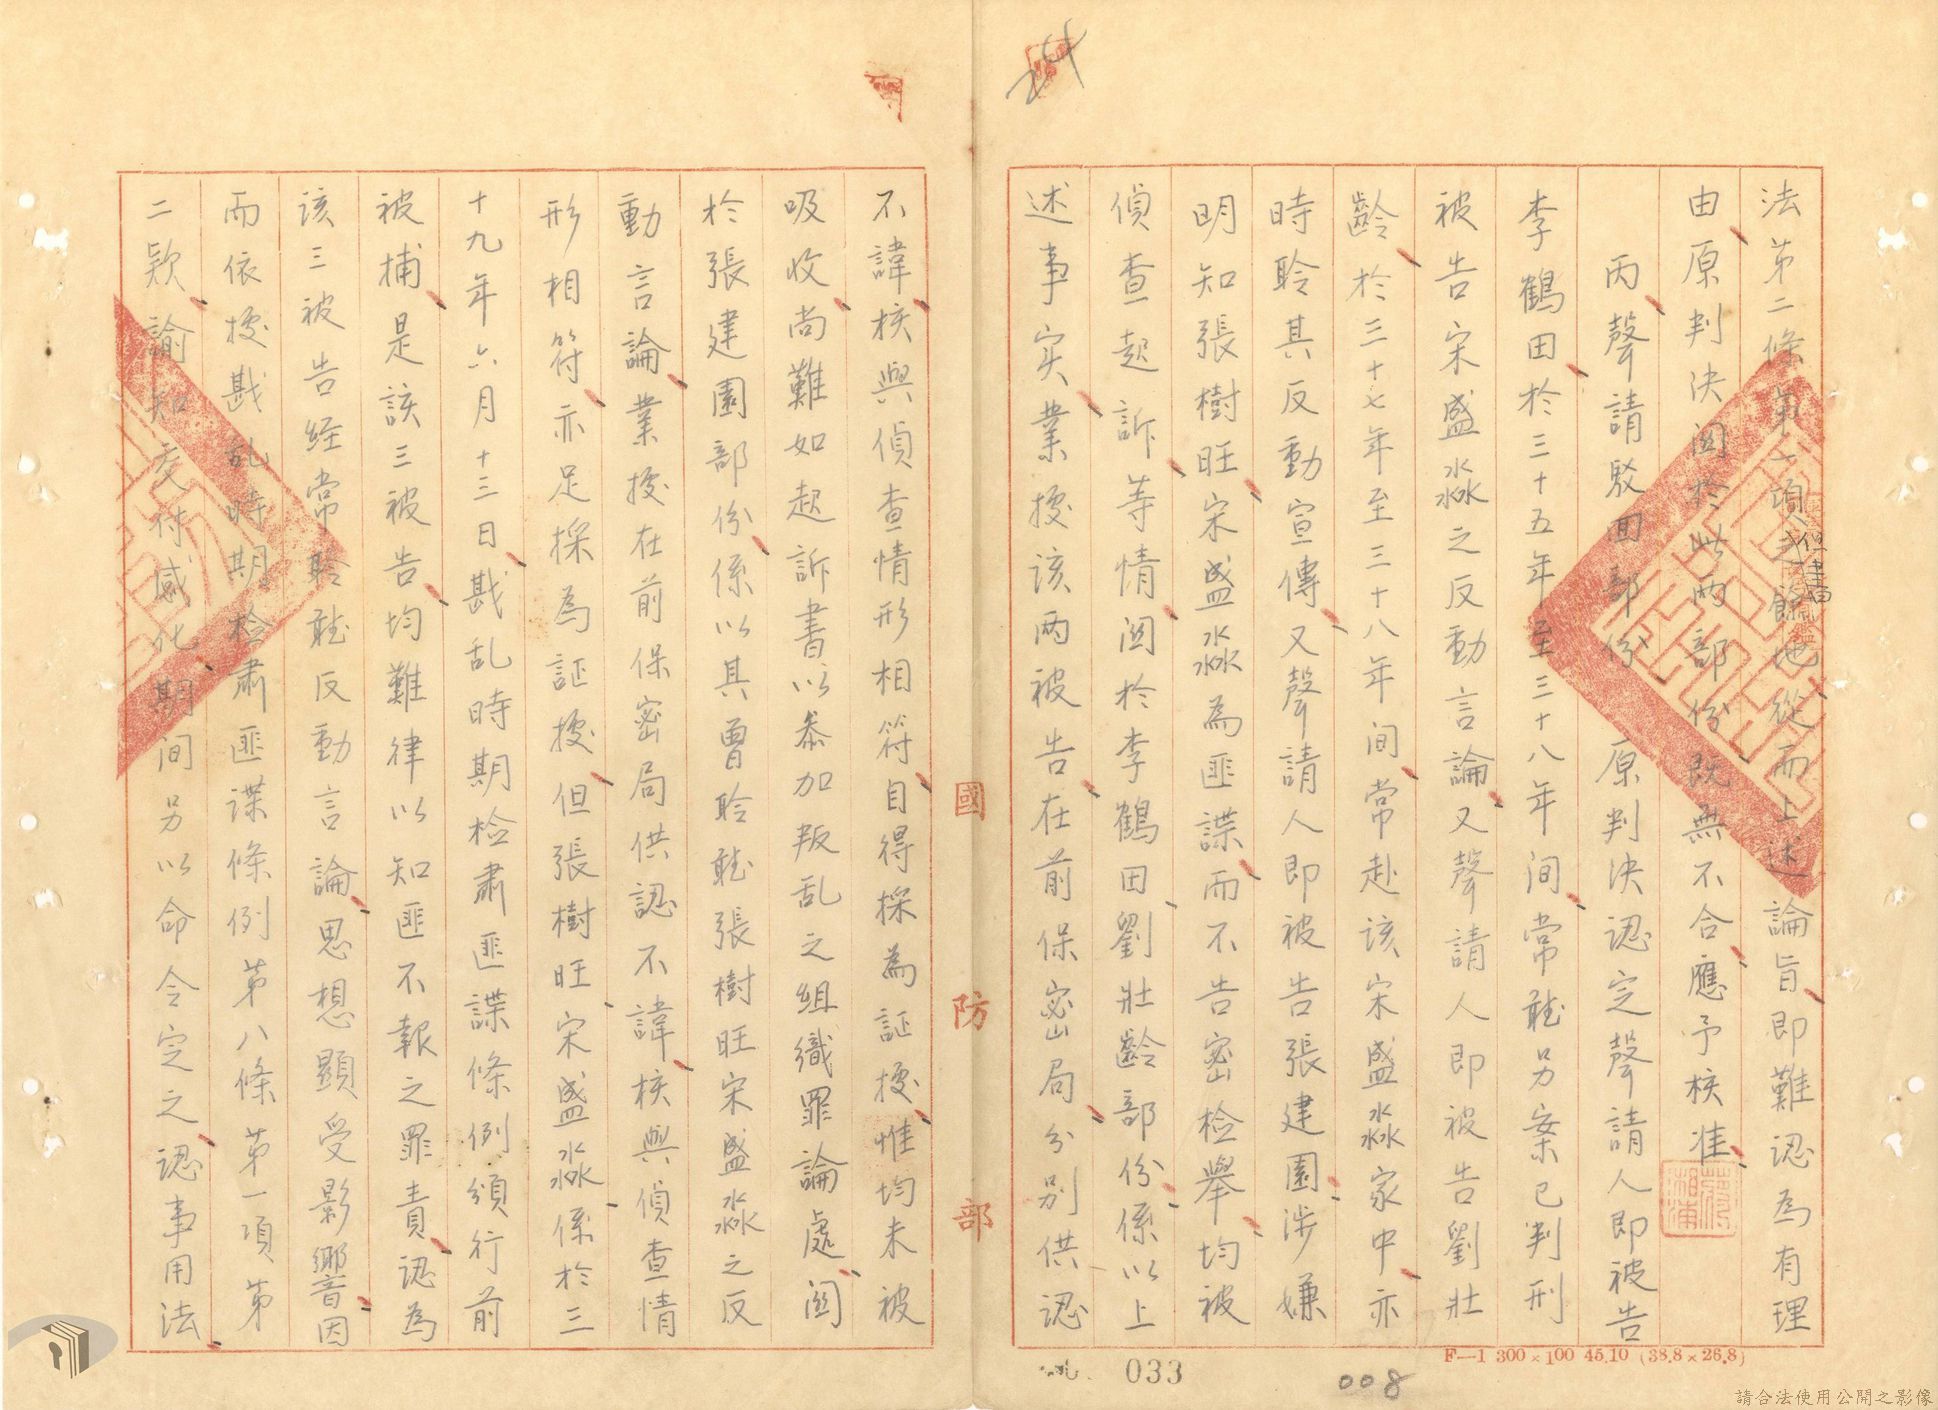 法第二條第一項之餘地從而上述論旨即難認為有理
但書場
由原判決關於此兩部份既無不合應予核准
丙聲請駁回部份　原判決認定聲請人即被告
李鶴田於三十五年至三十八年间常聽另案已判刑
被告宋盛淼淼之反動言論又聲請人即被告劉壯
齡於三十七年至三十八年间常赴該宋盛淼家中亦
時聆其反動宣傳又聲請人即被告張建園涉嫌
明知張樹旺宋盛淼為匪諜而不告密檢舉均被
偵查起訴等情關於李鶴田劉壯齡部份係以上
述事实業據該兩被告在前保密局分別供認
不諱核與偵查情形相符自得採為証據惟均未被
吸收尚難如起訴書以参加叛乱之組織罪論處關
於張建園部份係以其曾聆聽張樹旺宋盛淼之反
動言論業據在前保密局供認不諱核與偵查情
形相符亦足採為証據但張樹旺宋盛淼係於三
十九年六月十三日戡乱時期檢肅匪諜條例頒行前
被捕是該三被告均難律以知匪不報之罪責認為
該三被告经常聆聽反動言論思想顯受影響因
而依據戡乱時期檢肅匪諜條例第八條第一項第
二欵諭知交付感化期间另以命令定之認事用法
國防部
24
033
008
F—1 300×100 45.10 (38.8×26.8)
請合法使用公開之影像